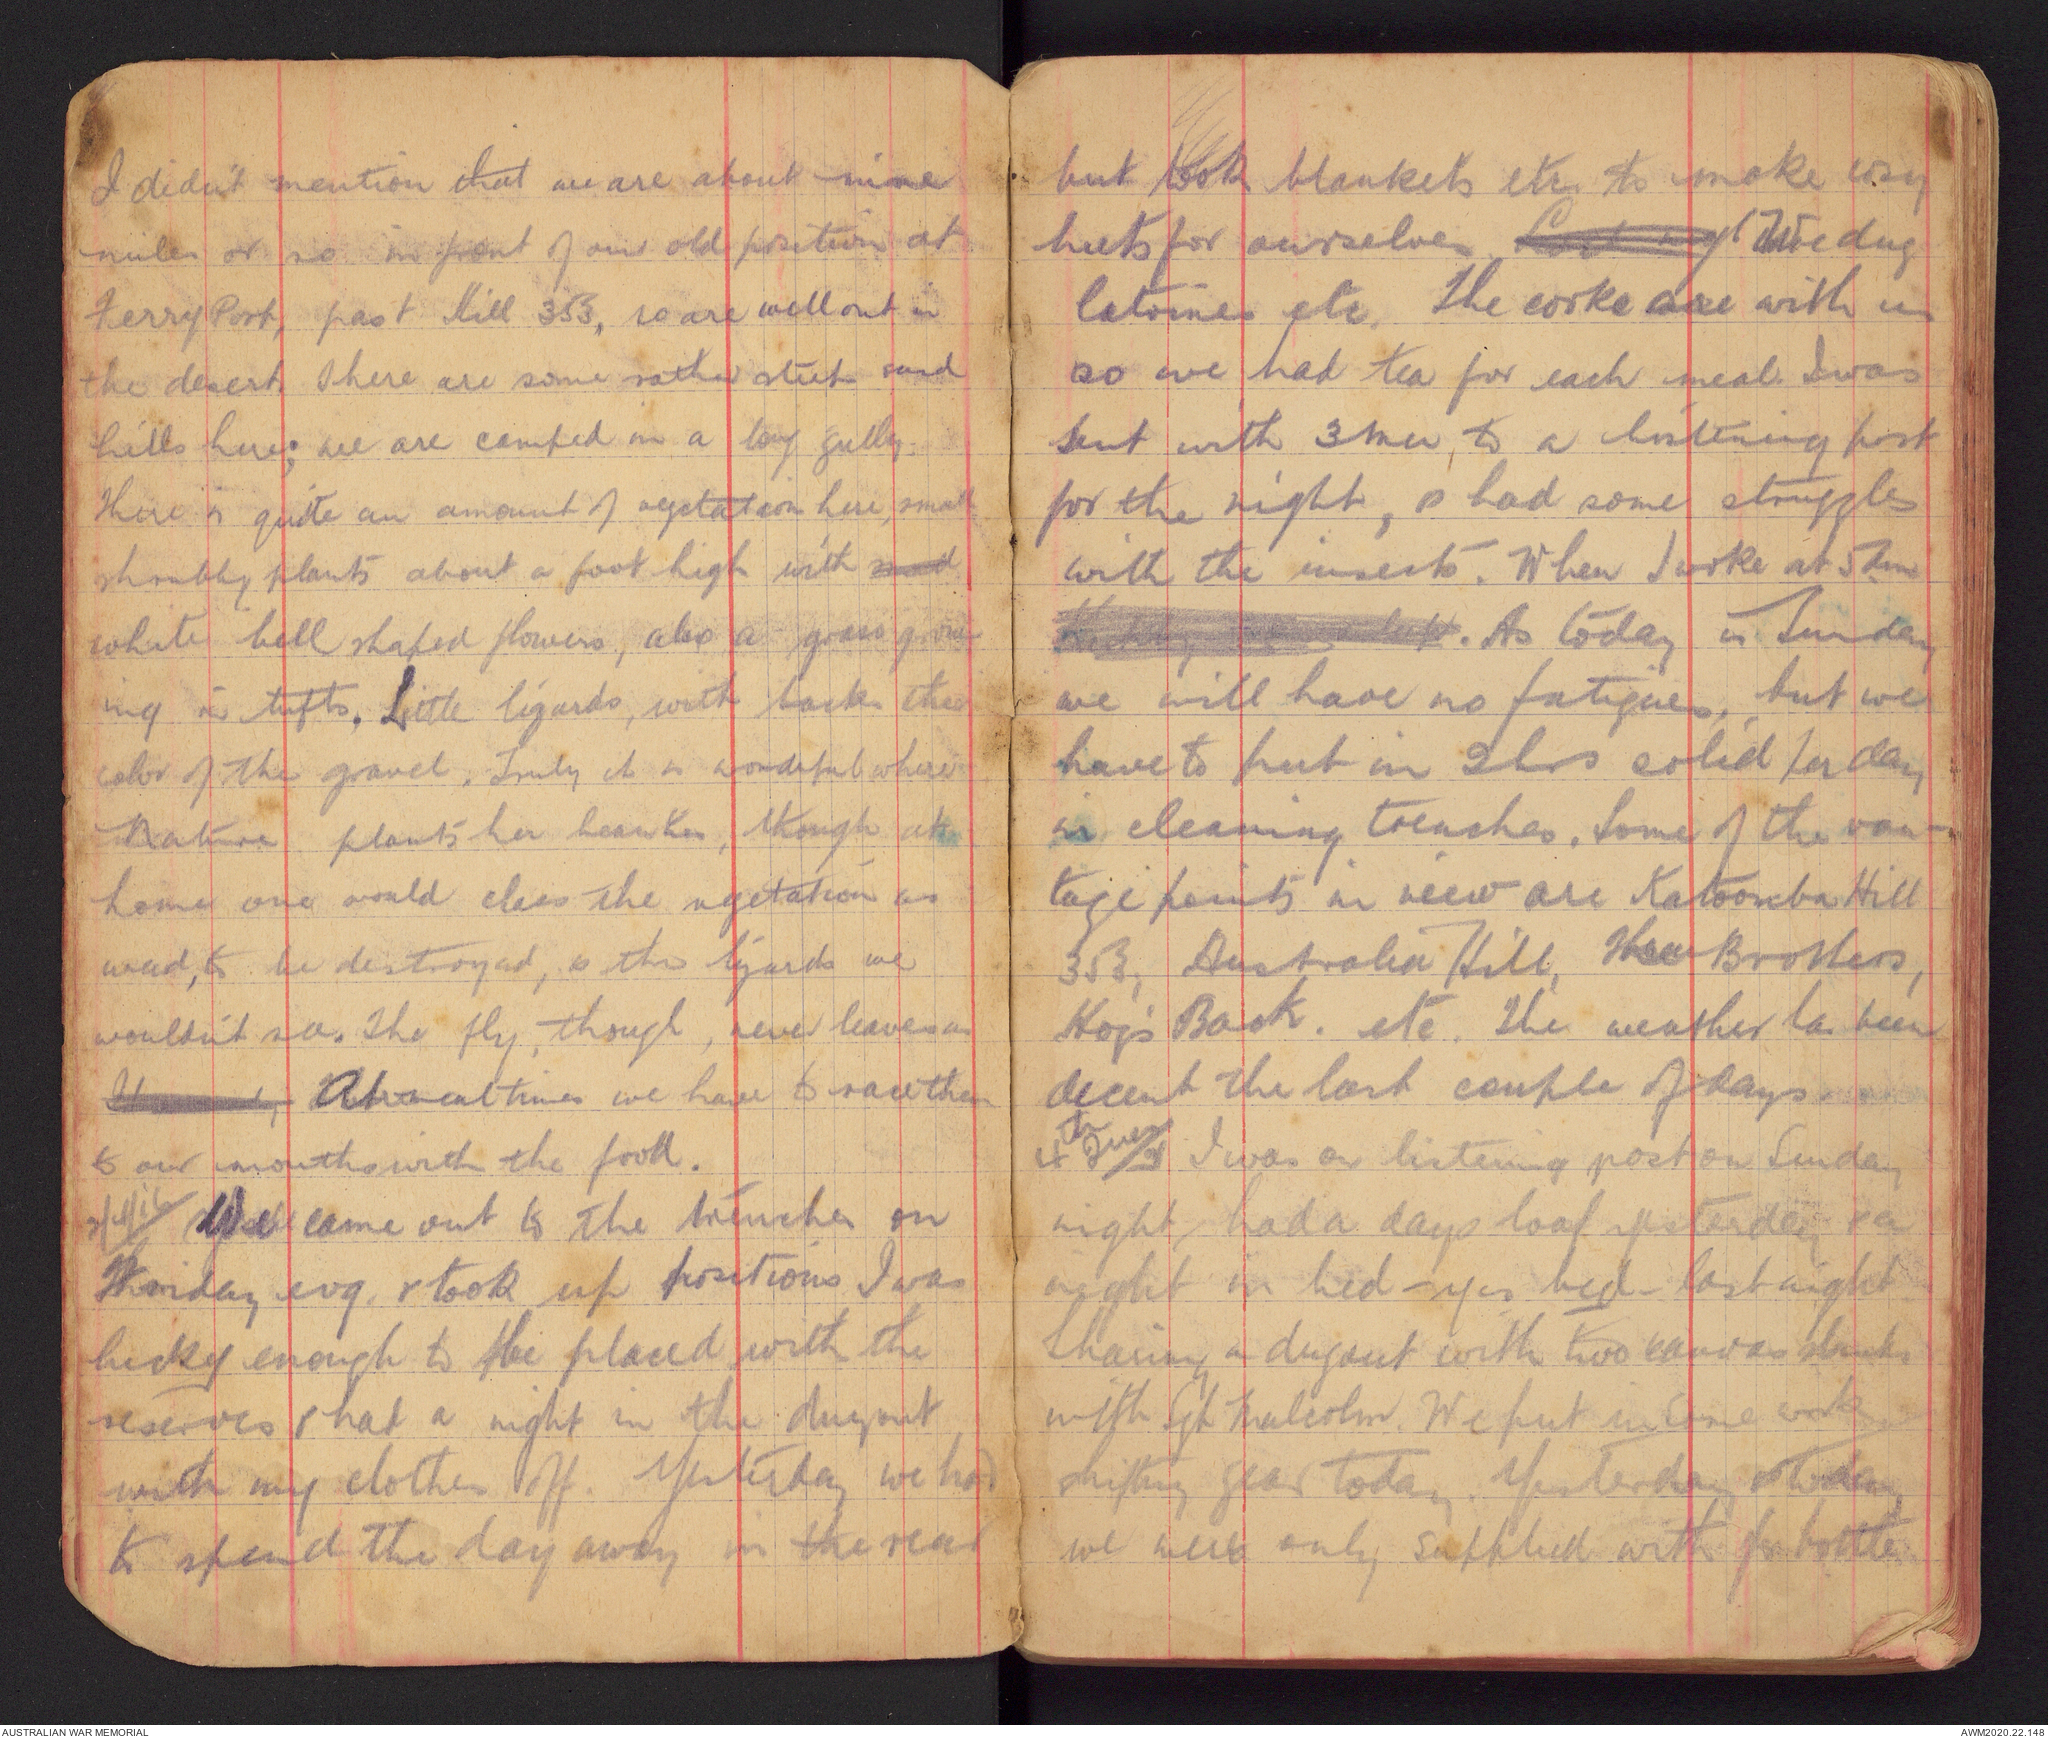 I didn't mention that we are about nine
miles or so in front of our old position at
Ferry Post, past Hill 353, so are well out in
the desert. There are some rather steep sand
hills here; we are camped in a long gully.
There is quite an amount of vegetation here, small
shrubby plants about a foot high with
white bell shaped flowers, also a grass grow-
ing in tufts. Little lizards, with backs the
color of the gravel. Truly it is wonderful where
Nature plants her beauties, though at
home one would class the vegetation as
weed, to be destroyed, & the lizards we
wouldn't see. The fly, though, never leaves us
At mealtimes we have to race them
to our mouths with the food.
2/4/16 We came out to the trenches on
Friday evg. & took up positions I was
lucky enough to be placed with the
reserves & had a night in the dugout
with my clothes off. Yesterday we had
to spend the day away in the rear
but took blankets etc. to make cosy
huts for ourselves. We dug
latrines etc. The cooks are with us
so we had tea for each meal. I was
sent with 3 men, to a listening post
for the night, & had some struggles
with the insects. When I woke at 5 am
. As today is Sunday
we will have no fatigues, but we
have to put in 2 hrs solid per day
in cleaning trenches. Some of the van-
tage points in view are Katoomba Hill
353, Australia Hill, Brothers,
Hog's Back. etc. The weather has been
decent the last couple of days.
4th Tues I was on listening post on Sunday
night, had a days loaf yesterday & a
night in bed - yes bed - last night.
Sharing a dugout with two canvas bunks
with Sgt Malcolm. We put in some work
shifting gear today. Yesterday & today
we were only supplied with bottle